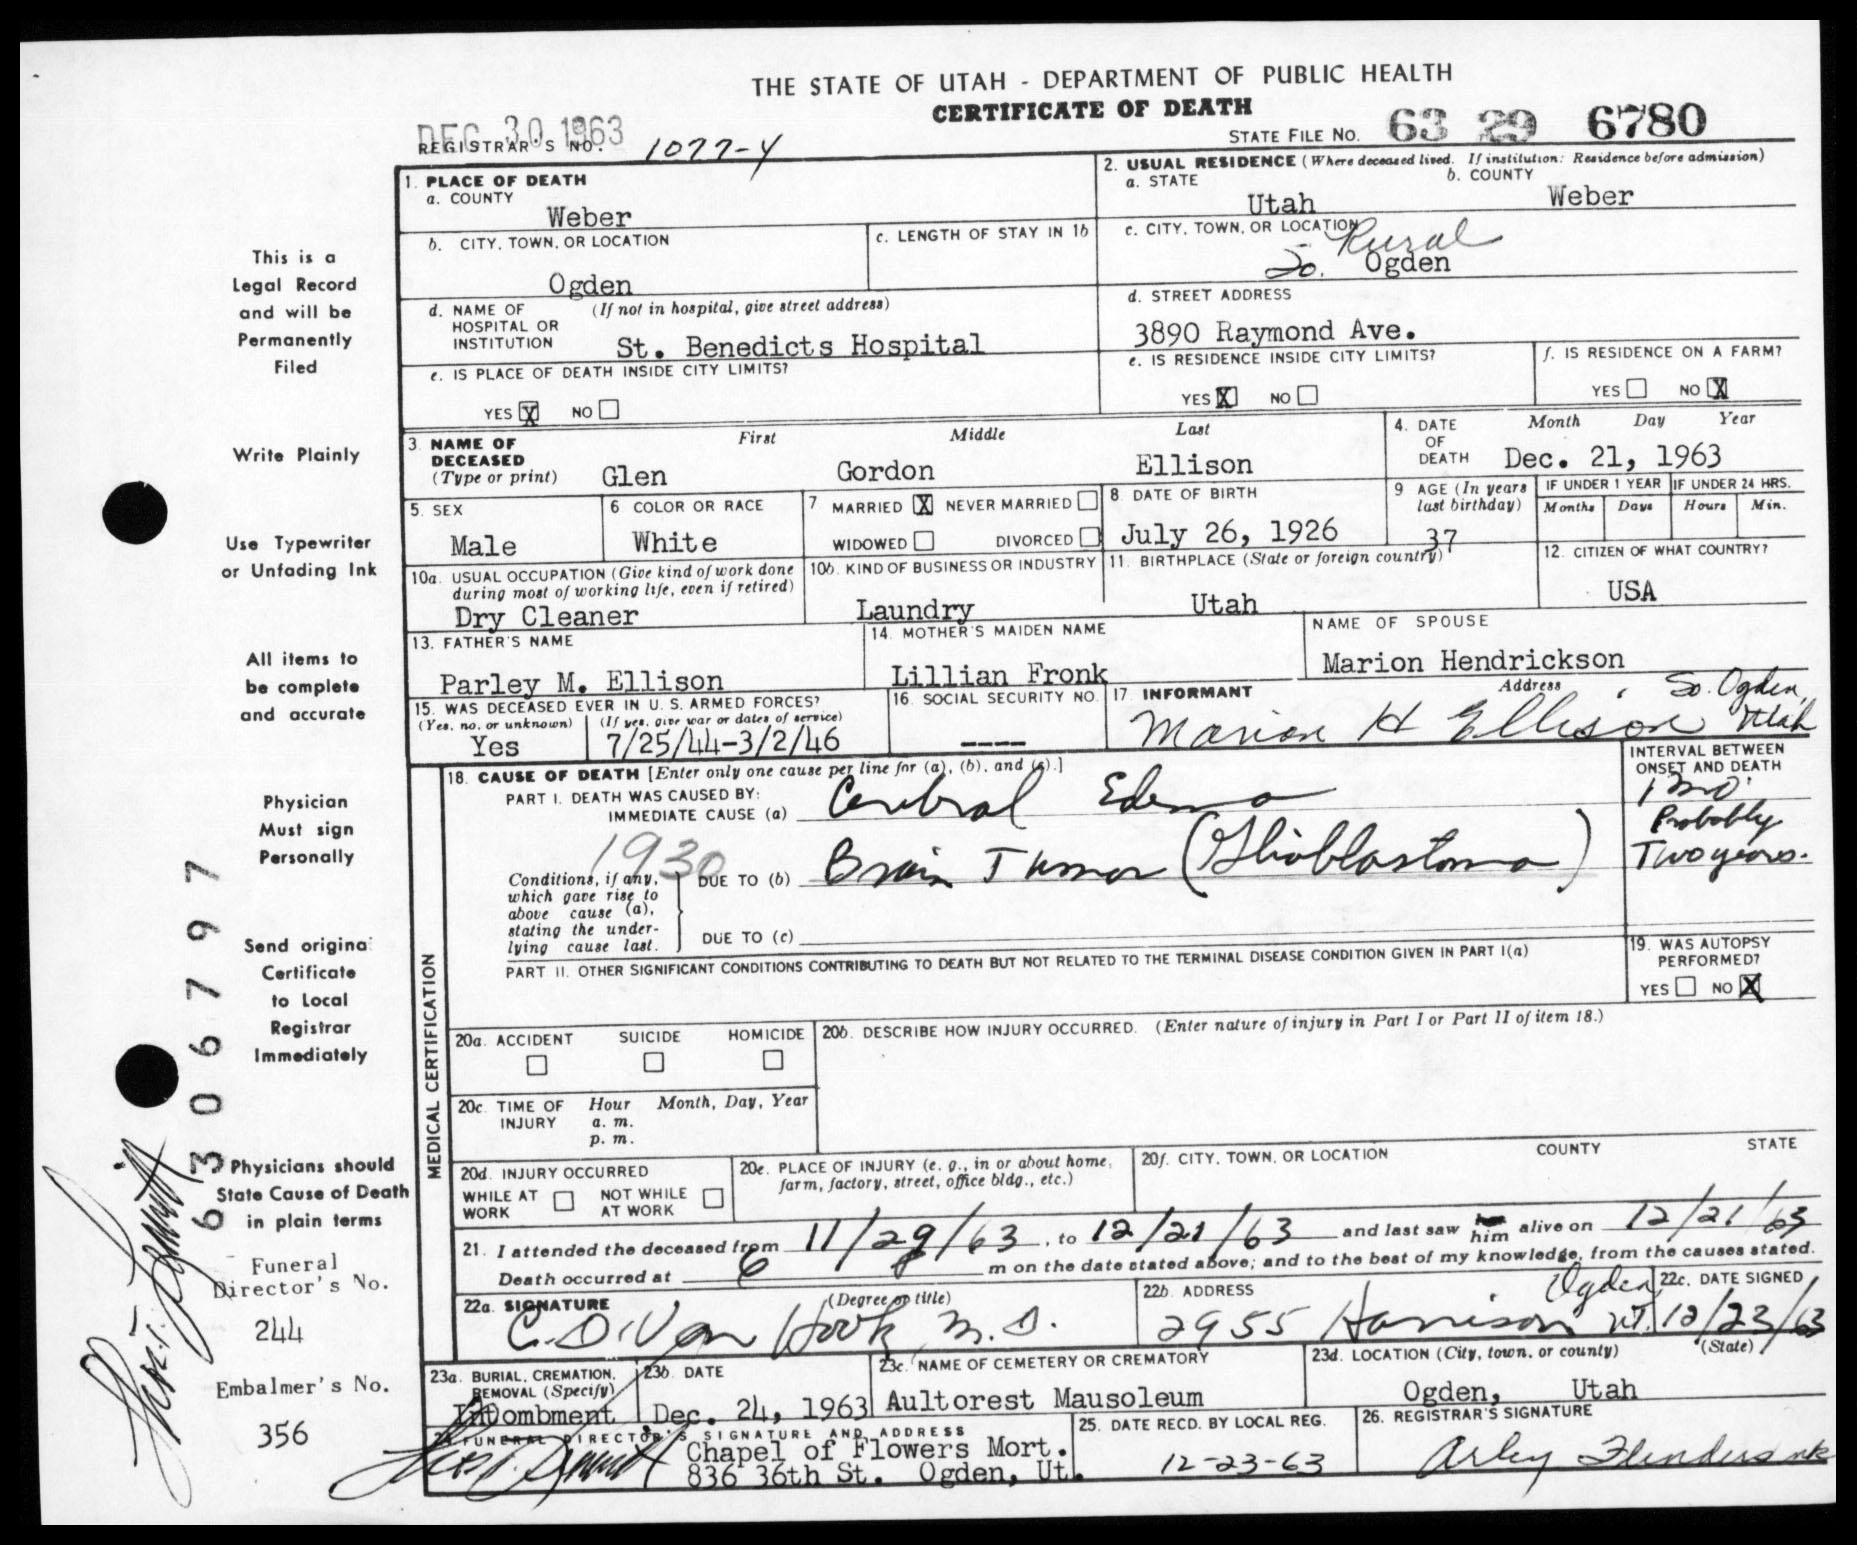 THE STATE OF UTAH - DEPARTMENT OF PUBLIC HEALTH
CERTIFICATE OF DEATH
DEC 30 1963
REGISTRAR'S NO. 1077-4
STATE FILE NO. 63 29 6780
1. PLACE OF DEATH
a. COUNTY
Weber
2. USUAL RESIDENCE (Where deceased lived. If institution: Residence before admission)
a. STATE b. COUNTY
Utah Weber
b. CITY, TOWN, OR LOCATION
Ogden
c. LENGTH OF STAY IN 1b
c. CITY, TOWN, OR LOCATION
Rural
So. Ogden
d. NAME OF (If not in hospital, give street address)
HOSPITAL OR
INSTITUTION St. Benedicts Hospital
d. STREET ADDRESS
3890 Raymond Ave.
e. IS PLACE OF DEATH INSIDE CITY LIMITS?
YES X NO
e. IS RESIDENCE INSIDE CITY LIMITS?
YES X NO
f. IS RESIDENCE ON A FARM?
YES NO X
3. NAME OF DECEASED (Type or print)
First Middle Last
Glen Gordon Ellison
4. DATE OF DEATH Month Day Year
Dec. 21, 1963
5. SEX
Male
6 COLOR OR RACE
White
7 MARRIED X NEVER MARRIED
WIDOWED DIVORCED
8. DATE OF BIRTH
July 26, 1926
9 AGE (In years last birthday)
37
IF UNDER 1 YEAR IF UNDER 24 HRS.
Months Days Hours Min.
10a. USUAL OCCUPATION (Give kind of work done during most of working life, even if retired)
Dry Cleaner
10b. KIND OF BUSINESS OR INDUSTRY
Laundry
11. BIRTHPLACE (State or foreign country)
Utah
12. CITIZEN OF WHAT COUNTRY?
USA
13. FATHER'S NAME
Parley M. Ellison
14. MOTHER'S MAIDEN NAME
Lillian Fronk
NAME OF SPOUSE
Marion Hendrickson
15. WAS DECEASED EVER IN U. S. ARMED FORCES?
(Yes, no, or unknown) (If yes, give war or dates of service)
Yes 7/25/44-3/2/46
16. SOCIAL SECURITY NO.
----
17. INFORMANT Address
Marion H Ellison So. Ogden, Utah
MEDICAL CERTIFICATION
18. CAUSE OF DEATH [Enter only one cause per line for (a), (b), and (c).]
INTERVAL BETWEEN ONSET AND DEATH
PART I. DEATH WAS CAUSED BY:
IMMEDIATE CAUSE (a) Cerebral Edema
1 mo.
1930
Conditions, if any, which gave rise to above cause (a), stating the underlying cause last.
DUE TO (b) Brain Tumor (Glioblastoma)
Probably
Two years.
DUE TO (c)
PART II. OTHER SIGNIFICANT CONDITIONS CONTRIBUTING TO DEATH BUT NOT RELATED TO THE TERMINAL DISEASE CONDITION GIVEN IN PART I(a)
19. WAS AUTOPSY PERFORMED?
YES NO X
20a. ACCIDENT SUICIDE HOMICIDE
20b. DESCRIBE HOW INJURY OCCURRED. (Enter nature of injury in Part I or Part II of item 18.)
20c. TIME OF INJURY Hour Month, Day, Year
a. m.
p. m.
20d. INJURY OCCURRED
WHILE AT WORK NOT WHILE AT WORK
20e. PLACE OF INJURY (e. g., in or about home, farm, factory, street, office bldg., etc.)
20f. CITY, TOWN, OR LOCATION COUNTY STATE
21. I attended the deceased from 11/29/63, to 12/21/63 and last saw him alive on 12/21/63
Death occurred at 6 m on the date stated above; and to the best of my knowledge, from the causes stated.
22a. SIGNATURE (Degree or title)
C. D. Van Hook, M. D.
22b. ADDRESS
2955 Harrison Ogden, UT.
22c. DATE SIGNED
12/23/63
23a. BURIAL, CREMATION, REMOVAL (Specify)
Intombment
23b. DATE
Dec. 24, 1963
23c. NAME OF CEMETERY OR CREMATORY
Aultorest Mausoleum
23d. LOCATION (City, town, or county) (State)
Ogden, Utah
24. FUNERAL DIRECTOR'S SIGNATURE AND ADDRESS
Chapel of Flowers Mort.
836 36th St. Ogden, Ut.
25. DATE RECD. BY LOCAL REG.
12-23-63
26. REGISTRAR'S SIGNATURE
Arley Flinders
This is a
Legal Record
and will be
Permanently
Filed
Write Plainly
Use Typewriter
or Unfading Ink
All items to
be complete
and accurate
Physician
Must sign
Personally
Send original
Certificate
to Local
Registrar
Immediately
Physicians should
State Cause of Death
in plain terms
Funeral
Director's No.
244
Embalmer's No.
356
6306797